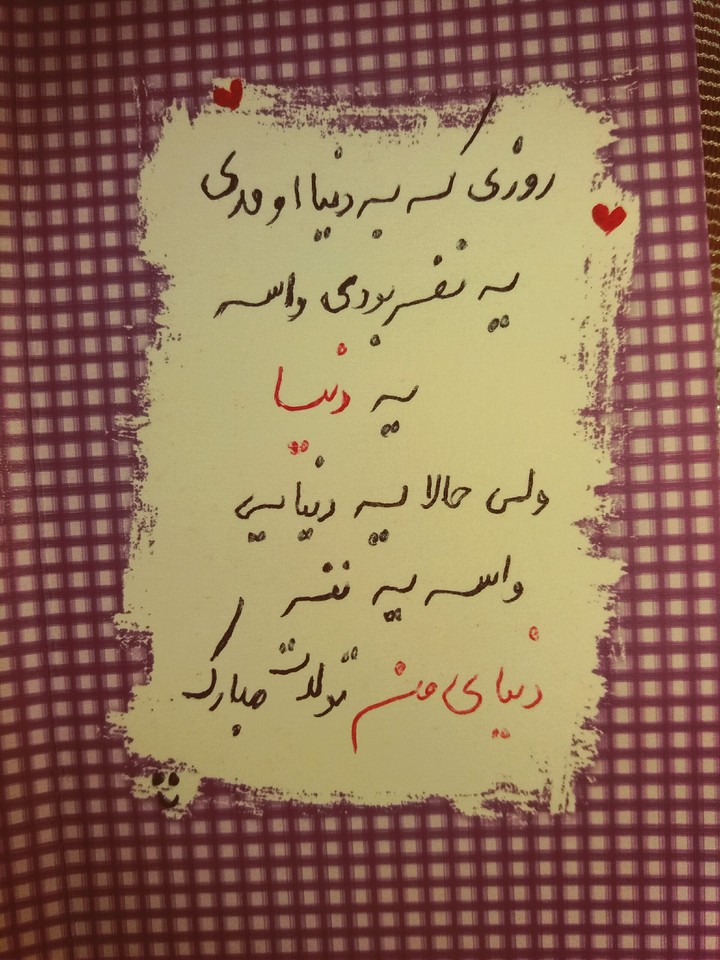 روزی که به دنیا اومدی
یه نفر بودی واسه
یه دنیا
ولی حالا یه دنیایی
واسه یه نفر
دنیای من تولدت مبارک